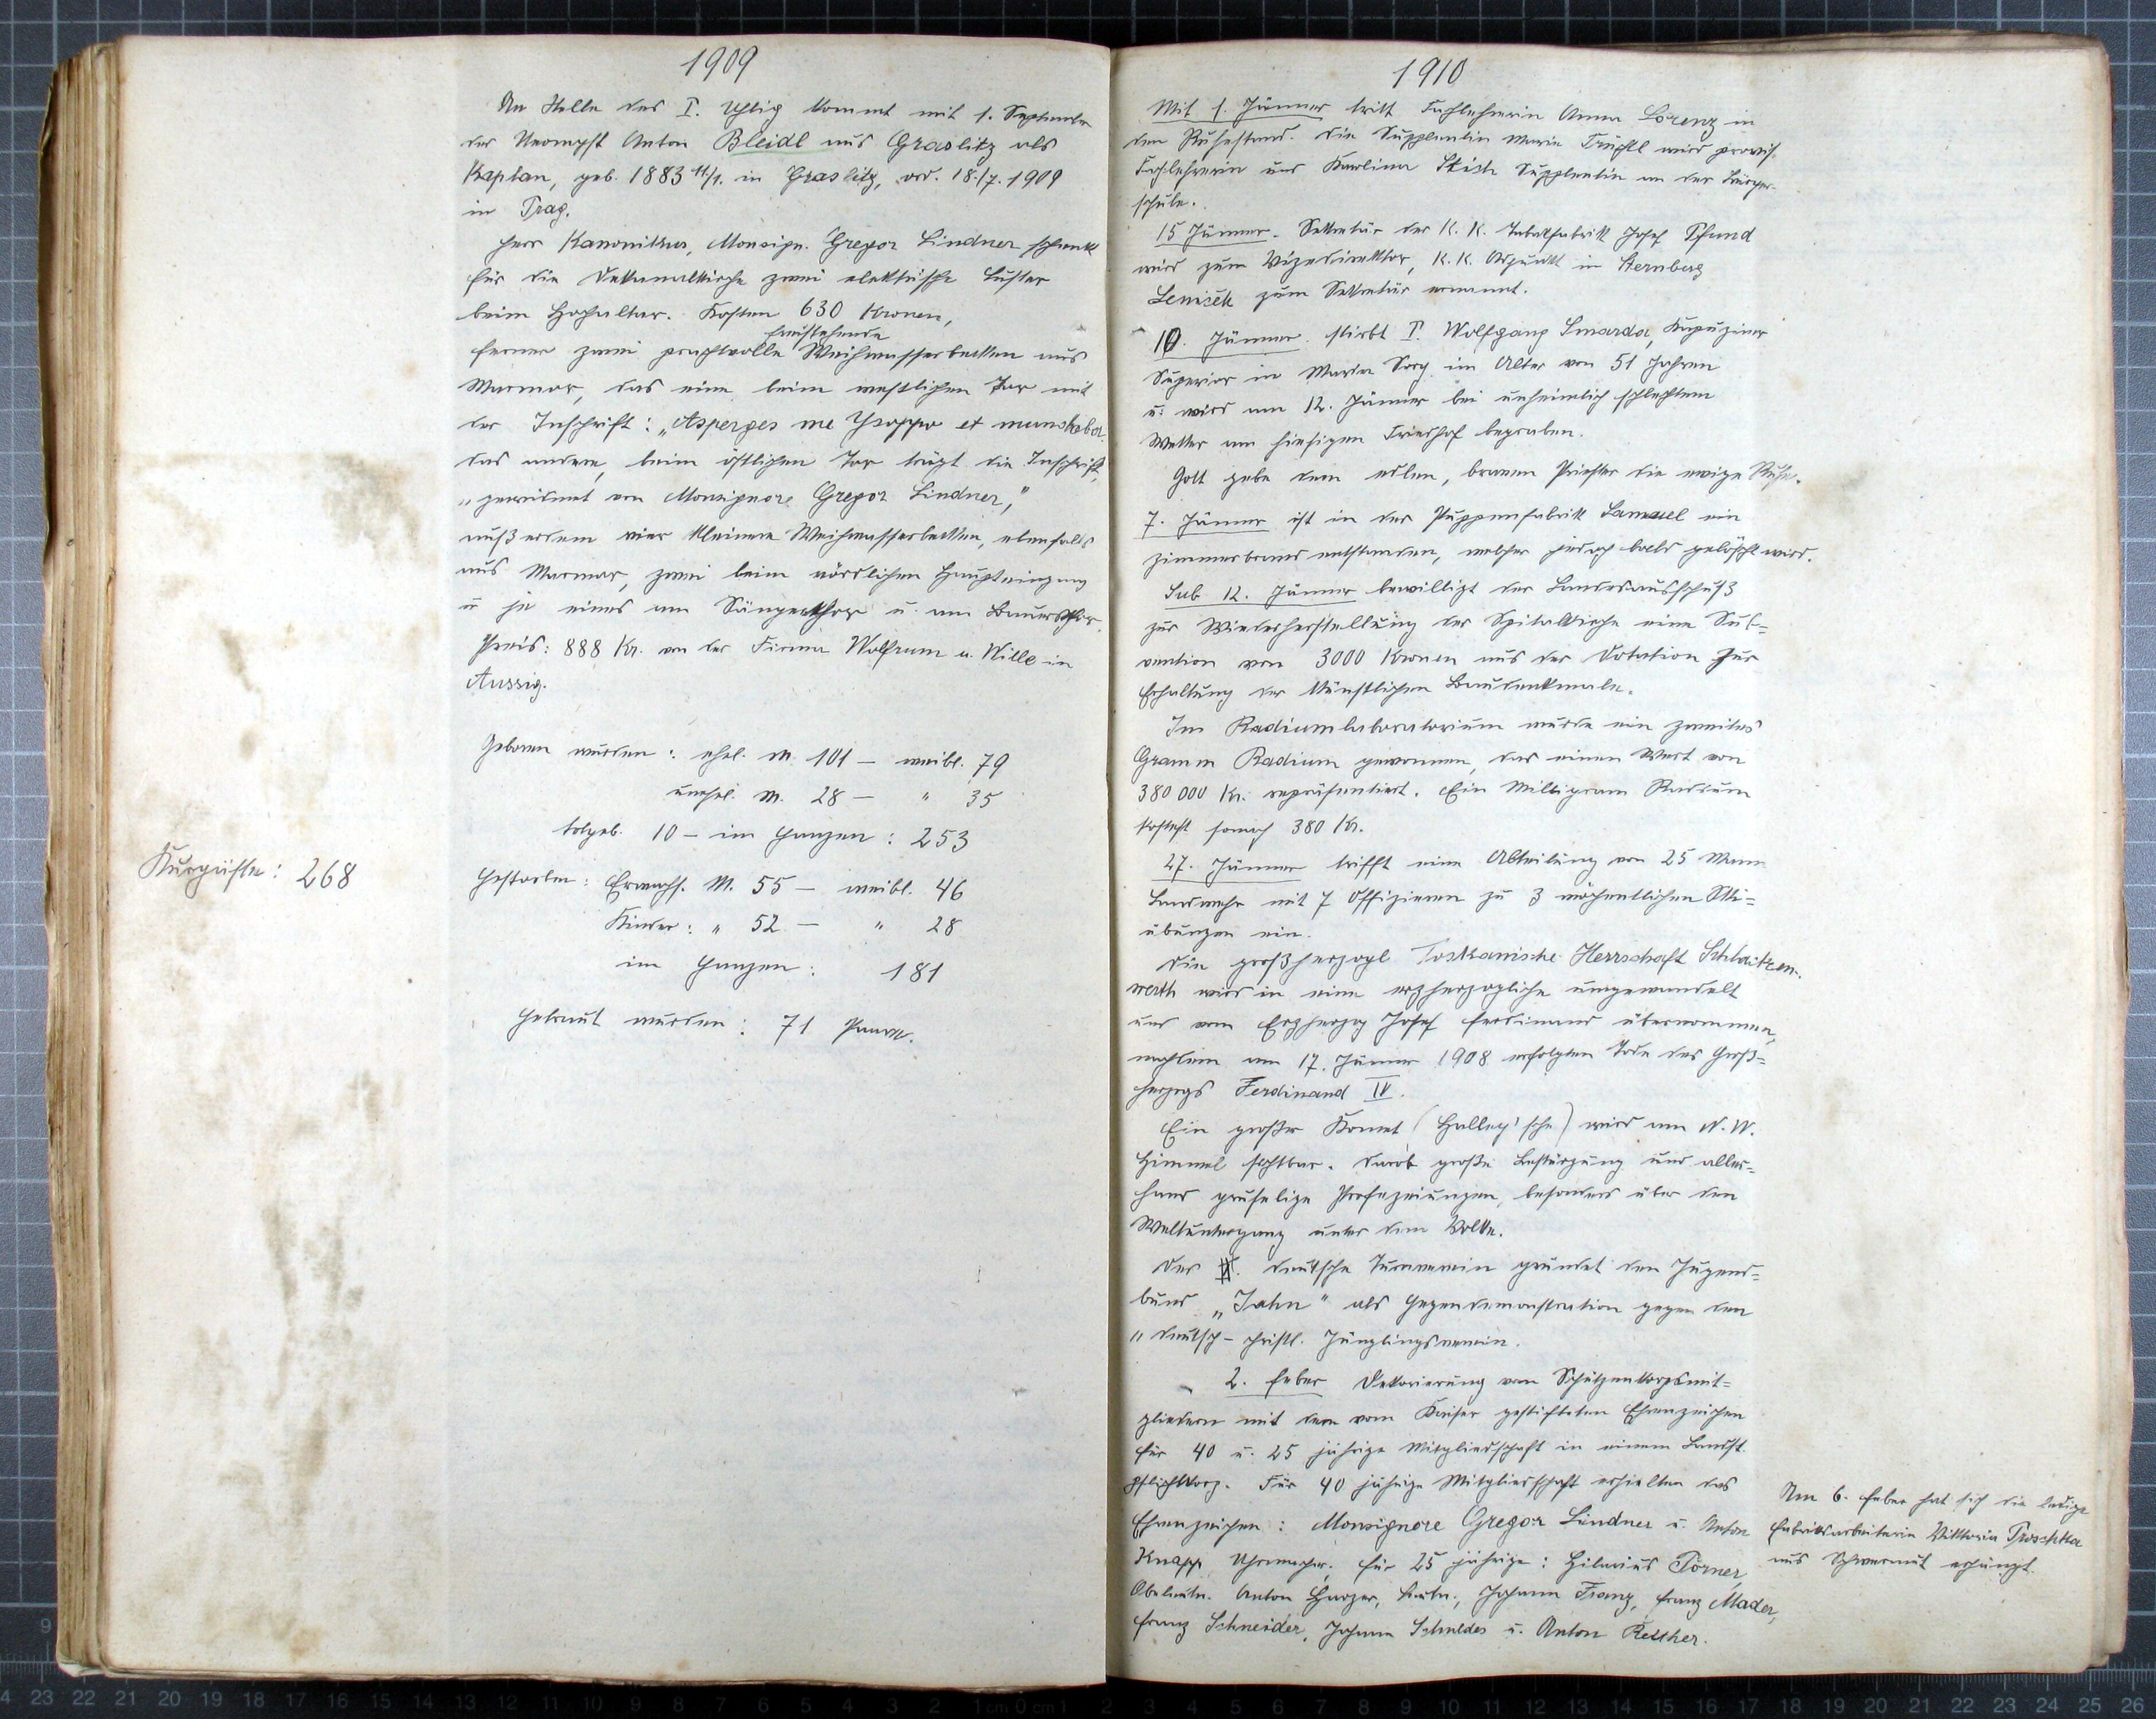 1909
An Stelle des P. Uhlig kommt mit 1. September
der Neomyst Anton Bleidl aus Graslitz als
Kaplan, geb. 1883 11./1. in Graslitz, ord. 18./7. 1909
in Prag.
Herr Kanonikus, Monsign. Gregor Lindner schenkt
für die Dekanalkirche zwei elektrische Luster
beim Hochaltar. Kosten 630 Kronen,
freistehende
ferner zwei prachtvolle Weihwasserbecken aus
Marmor, das eine beim westlichen Tor mit
der Inschrift: „Asperges me Ysoppo et mundabor.
das andere, beim östlichen Tor trägt die Inschrift,
„gewidmet von Monsignore Gregor Lindner,"
außerdem vier kleinere Weihwasserbecken, ebenfalls
aus Marmor, zwei beim nördlichen Haupteingang
u je eines am Sängerthor u. am
Preis: 888 Kr. von der Firma Wolfrum u. Wille in
Aussig.
Geboren wurden: ehel. M. 101 – weibl. 79
unehel. M. 28 – " 35
totgeb. 10 – im Ganzen: 253
Kurgäste: 268
Gestorben: Erwachs. M. 55 – weibl. 46
Kinder: " 52 – " 28
im Ganzen: 181
Getraut wurden: 71 Paare.
1910
Mit 1. Jänner tritt Fachlehrerin Anna Lorenz in
den Ruhestand. Die Supplentin Marie Trüchtl wird provis.
Fachlehrerin und Karolina Stich Supplentin an der Bürger-
schule.
15 Jänner. Sekretär der K. K. Tabakfabrik Josef Pfund
wird zum Vizedirektor, K. K. Adjunkt in Sternberg
Leniček zum Sekretär ernannt.
10. Jänner. stirbt P. Wolfgang Smarda, Kapuziner
Superior in Maria Sorg im Alter von 51 Jahren
u: wird am 12. Jänner bei unheimlich schlechtem
Wetter am hiesigen Friedhof begraben.
Gott gebe dem edlen, braven Priester die ewige Ruhe.
7. Jänner ist in der Puppenfabrik Samuel ein
Zimmerbrand entstanden, welcher jedoch bald gelöscht wird.
Sub 12. Jänner bewilligt der Landesausschuß
zur Wiederherstellung der Spitalkirche eine Sub=
vention von 3000 Kronen aus der Dotation zur
Erhaltung der künstlichen Baudenkmale.
Im Radiumlaboratorium wurde ein zweites
Gramm Radium gewonnen, das einen Wert von
380 000 Kr. repräsentiert. Ein Milligram Radium
kostet somit 380 Kr.
27. Jänner trifft eine Abteilung von 25 Mann
Landwehr mit 7 Offizieren zu 3 wöchentlichen Ski=
übungen ein.
Die großherzogl Toskanische Herrschaft Schlacken-
werth wird in eine erzherzogliche umgewandelt
und vom Erzherzog Josef Ferdinand übernommen,
nach dem am 17. Jänner 1908 erfolgten Tode des Groß=
herzogs Ferdinand IV.
Ein großer Komet (Halley'sche) wird am N. W.
Himmel sichtbar. Darob große Bestürzung und aller=
hand gruselige Profezeiungen, besonders über den
Weltuntergang unter dem Volke.
Der deutsche Turnverein gründet den Jugend=
bund „Jahn" als Gegendemonstration gegen den
„deutsch-christl. Jünglingsverein.
2. Feber Dekorierung von Schützenkorpsmit=
gliedern mit dem vom Kaiser gestifteten Ehrenzeichen
für 40 u. 25 jährige Mitgliedschaft in einem Landst.
pflichtkorp. Für 40 jährige Mitgliedschaft erhielten das
Ehrenzeichen: Monsignore Gregor Lindner u. Anton
Knapp Uhrmacher; für 25 jährige: Hilarius Pörner,
Oberleutn. Anton Harzer, Leutn., Johann Franz, Franz Mader,
Franz Schneider, Johann Schuldes u. Anton Reither.
Am 6. Feber hat sich die ledige
Fabriksarbeiterin Viktoria Proschka
aus Schwermut erhängt.